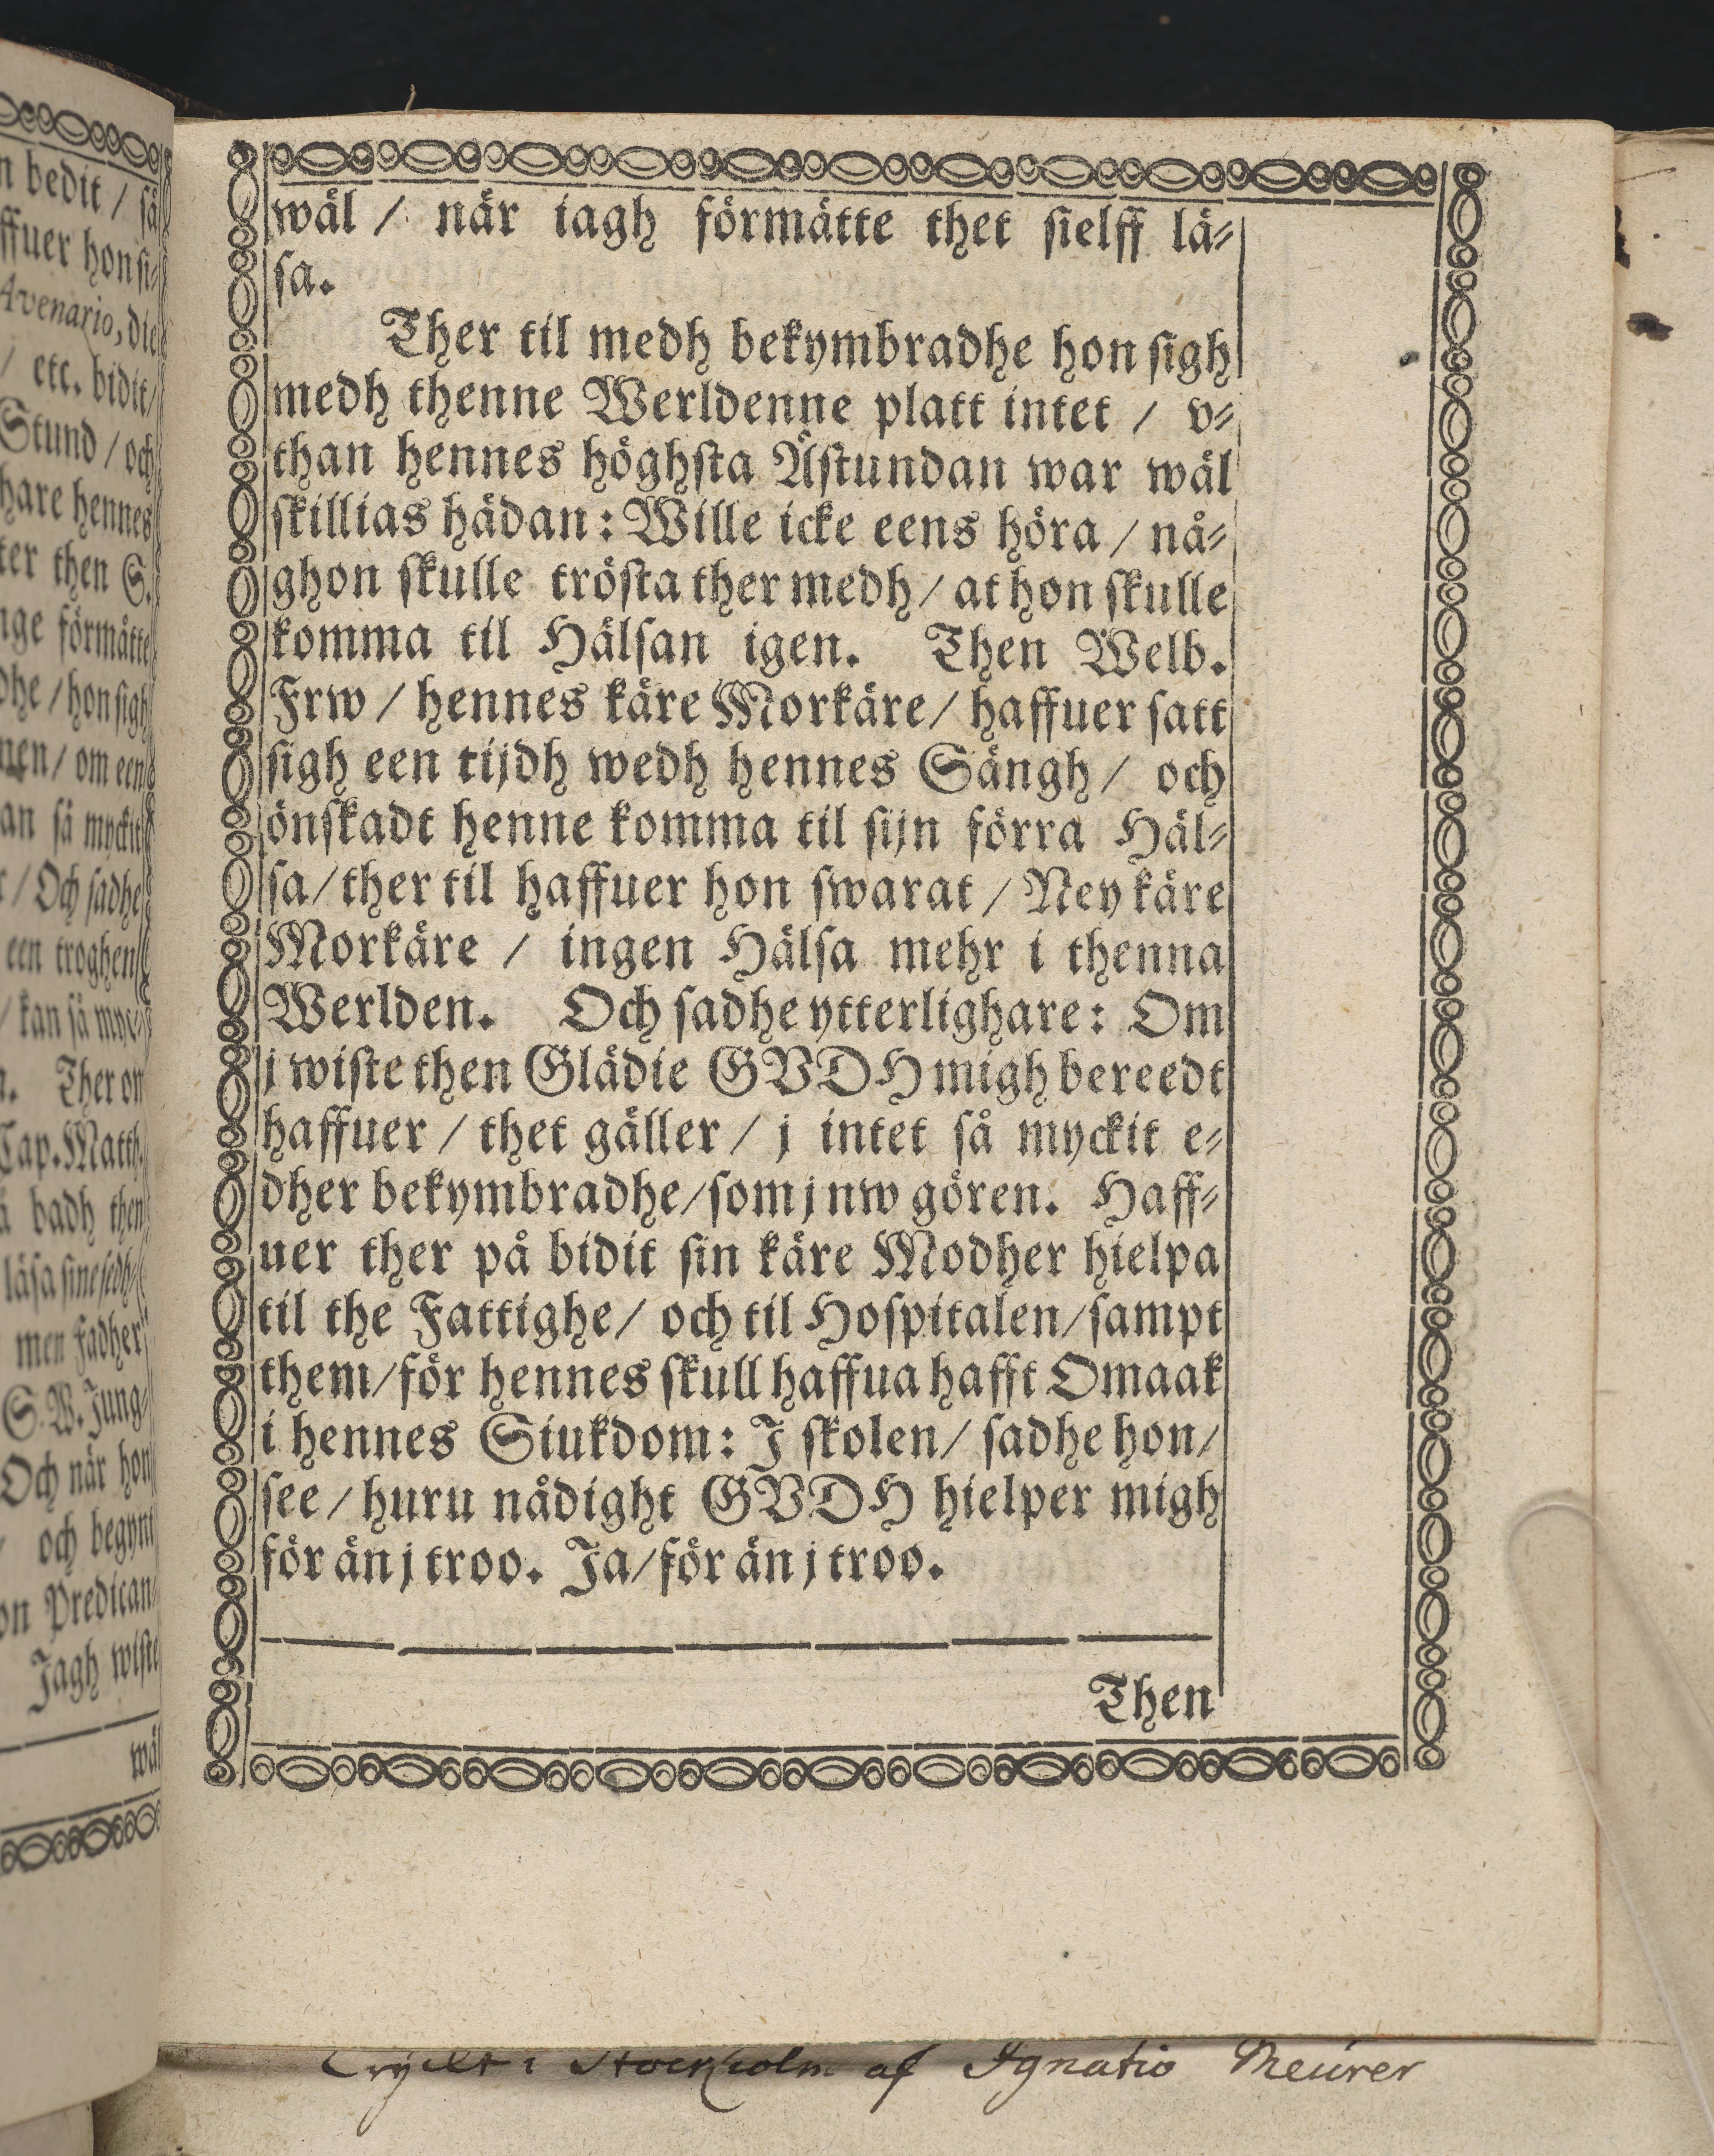 n bedit / så
ffuer hon si⸗
Avenario, die
/ etc. bidit/
Stund / och
hare hennes
ter then S.
nge förmåtte
dhe / hon sigh
nen / om een
an så myckit
/ Och sadhe
een troghen
/ kan så myc⸗
Ther on
Cap. Matth.
badh then
läsa sine
men Fadher
S. W. Jung⸗
Och när hon
och begynt
on Predican⸗
Jagh wiste
wäl
wäl / när iagh förmåtte thet sielff lä⸗
sa.
Ther til medh bekymbradhe hon sigh
medh thenne Werldenne platt intet / v⸗
than hennes höghsta Åstundan war wäl
skillias hädan: Wille icke eens höra / nå⸗
ghon skulle trösta ther medh / at hon skulle
komma til Hälsan igen. Then Welb.
Frw / hennes käre Morkäre / haffuer satt
sigh een tijdh wedh hennes Sängh / och
önskadt henne komma til sijn förra Häl⸗
sa / ther til haffuer hon swarat / Ney käre
Morkäre / ingen Hälsa mehr i thenna
Werlden. Och sadhe ytterlighare: Om
j wiste then Glädie GVDH migh bereedt
haffuer / thet gäller / j intet så myckit e⸗
dher bekymbradhe / som j nw gören. Haff⸗
uer ther på bidit sin käre Modher hielpa
til the Fattighe / och til Hospitalen / sampt
them / för hennes skull haffua hafft Omaak
i hennes Siukdom: J skolen / sadhe hon /
see / huru nådight GVDH hielper migh
för än j troo. Ja / för än j troo.
Then
Tryckt i Stockholm af Ignatio Meürer